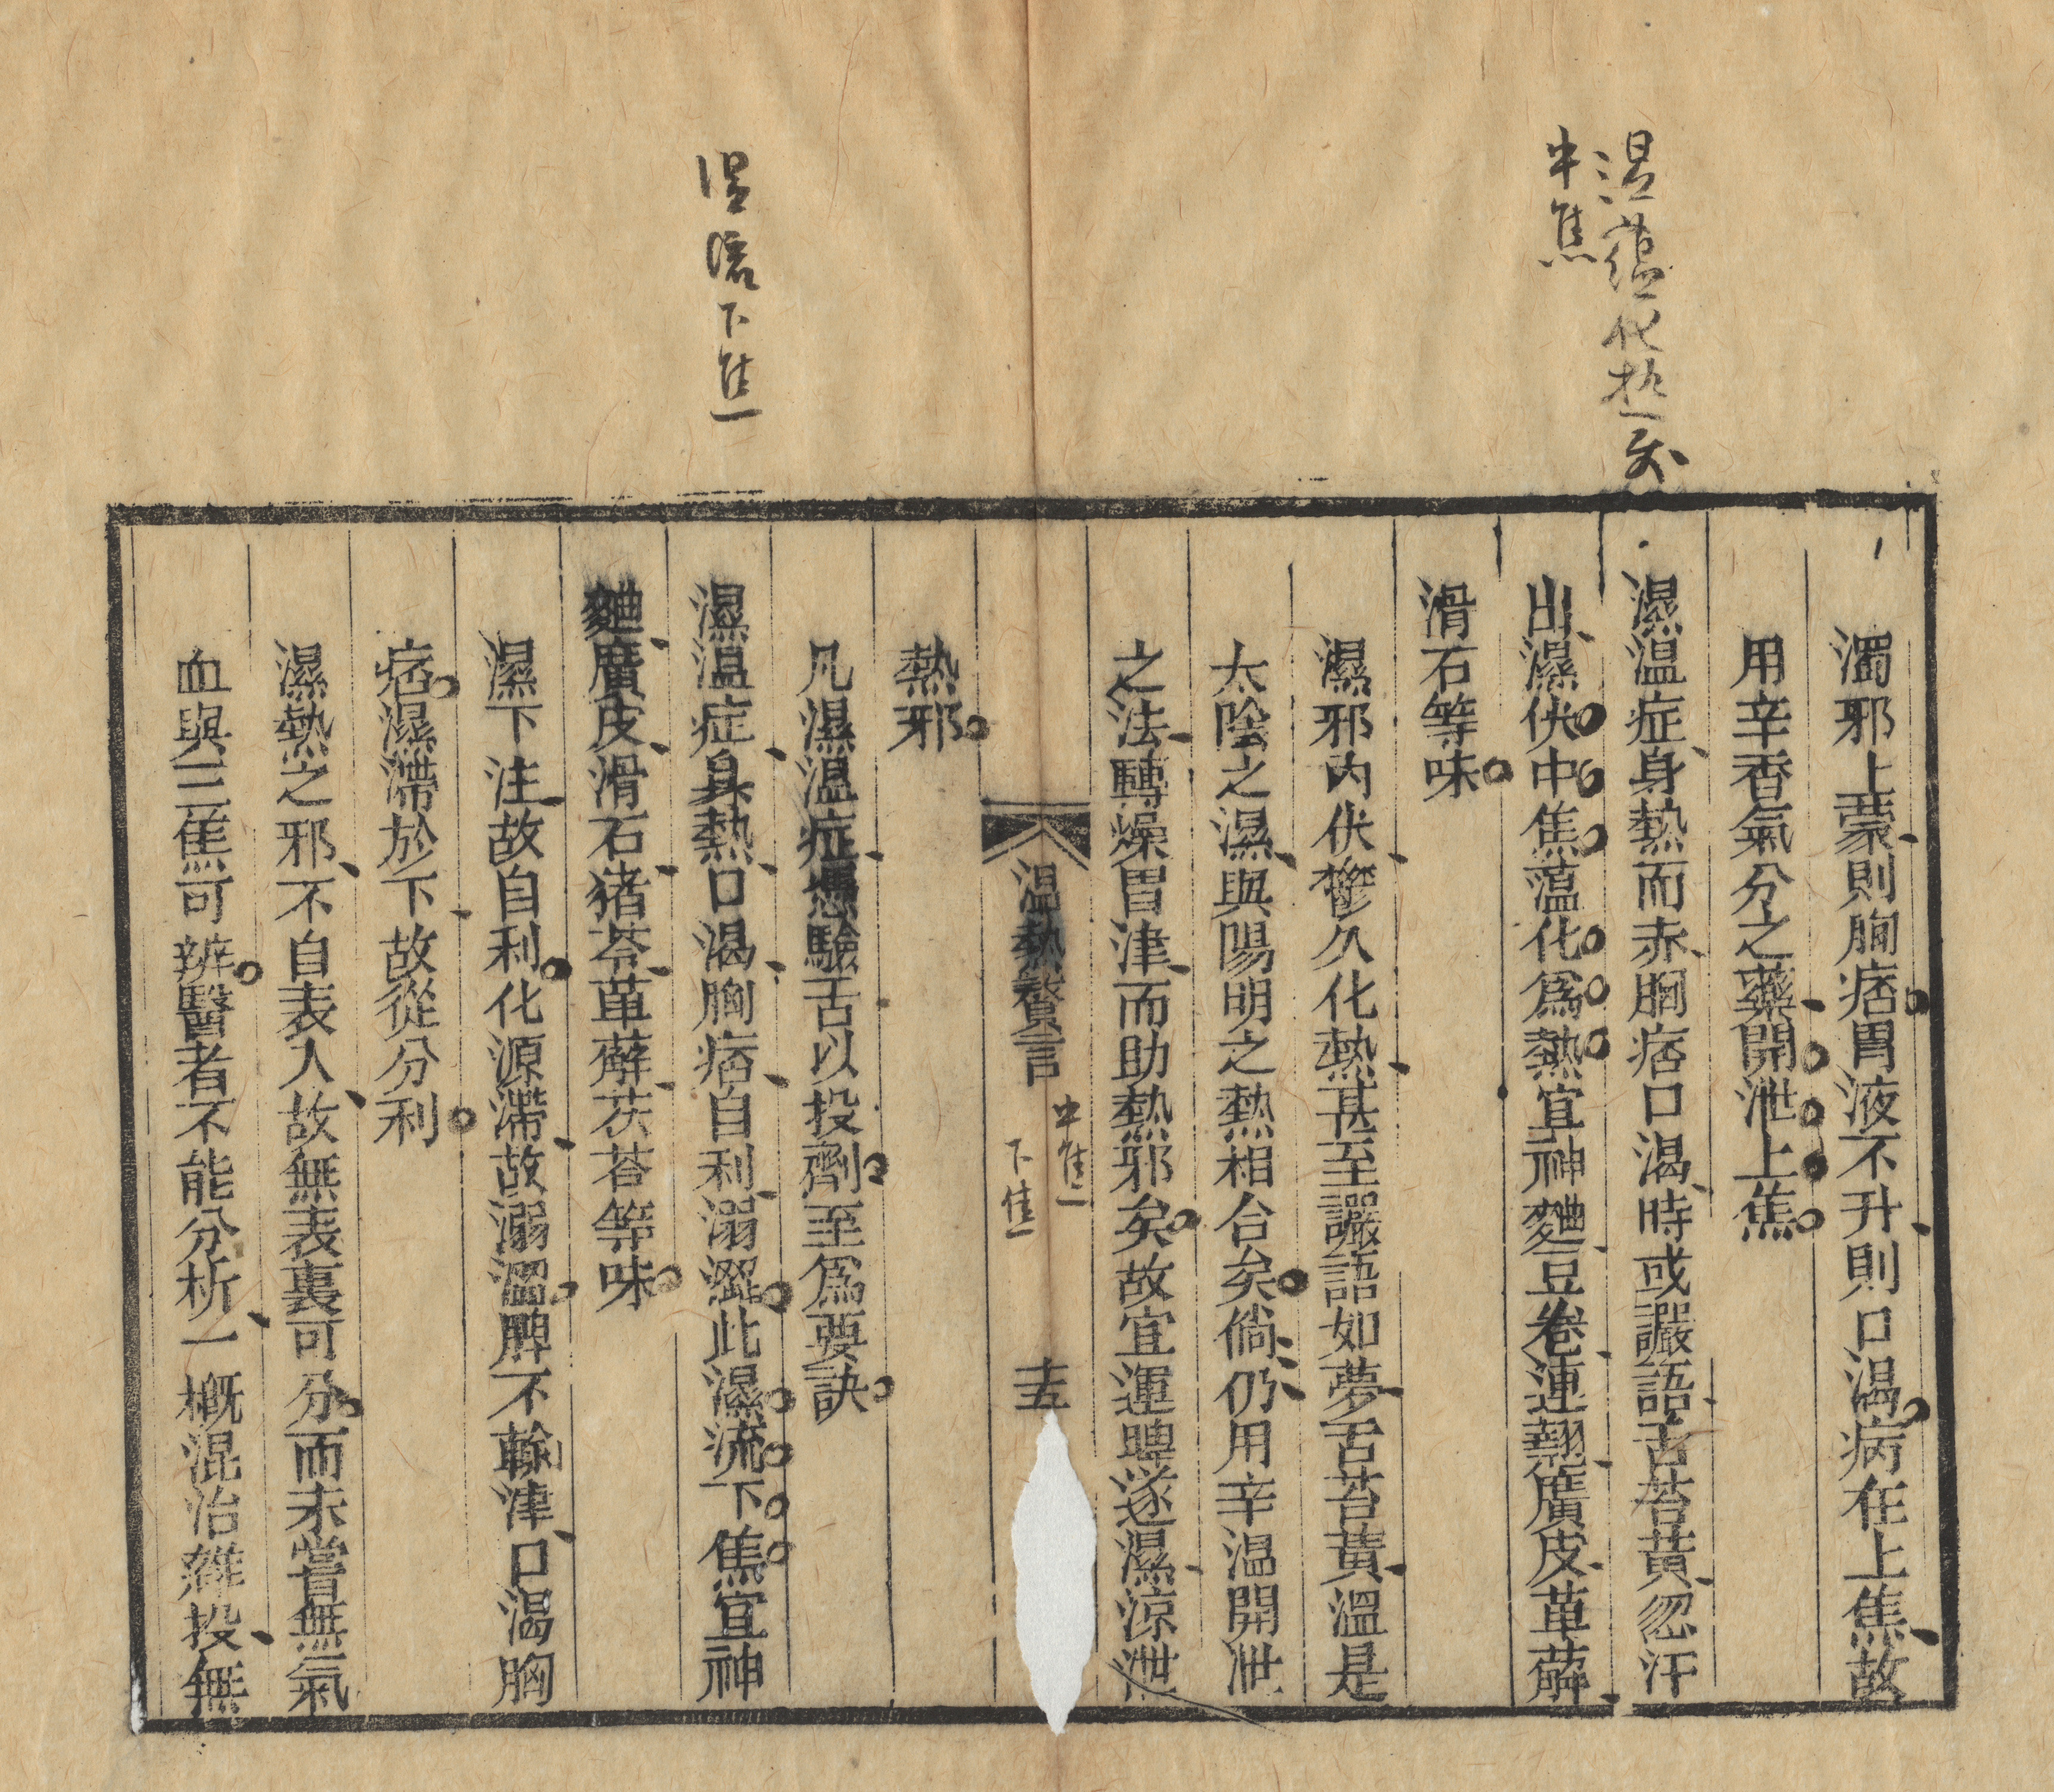 濕蘊化熱在
中焦
濕流下焦
濁邪上蒙則胸痞胃液不升則口渴病在上焦故
用辛香氣分之藥開泄上焦
濕温症身熱而赤胸痞口渴時或讝語舌苔黃忽汗
出濕伏中焦薀化爲熱宜神麯豆卷連翹廣皮萆薢
滑石等味
濕邪內伏鬱久化熱甚至讝語如夢舌苔黃溫是
太陰之濕與陽明之熱相合矣倘仍用辛溫開泄
之法轉燥胃津而助熱邪矣故宜運脾逐濕涼泄
熱邪
温熱贅言
中焦
下焦
十五
凡濕温症憑驗舌以投劑至爲要訣
濕温症身熱口渴胸痞自利溺澀此濕流下焦宜神
麯廣皮滑石猪苓萆薢茯苓等味
濕下注故自利化源滯故溺澀脾不輸津口渴胸
痞濕滯於下故從分利
濕熱之邪不自表人故無表裏可分而未嘗無氣
血與三焦可辨醫者不能分析一概混治雜投無